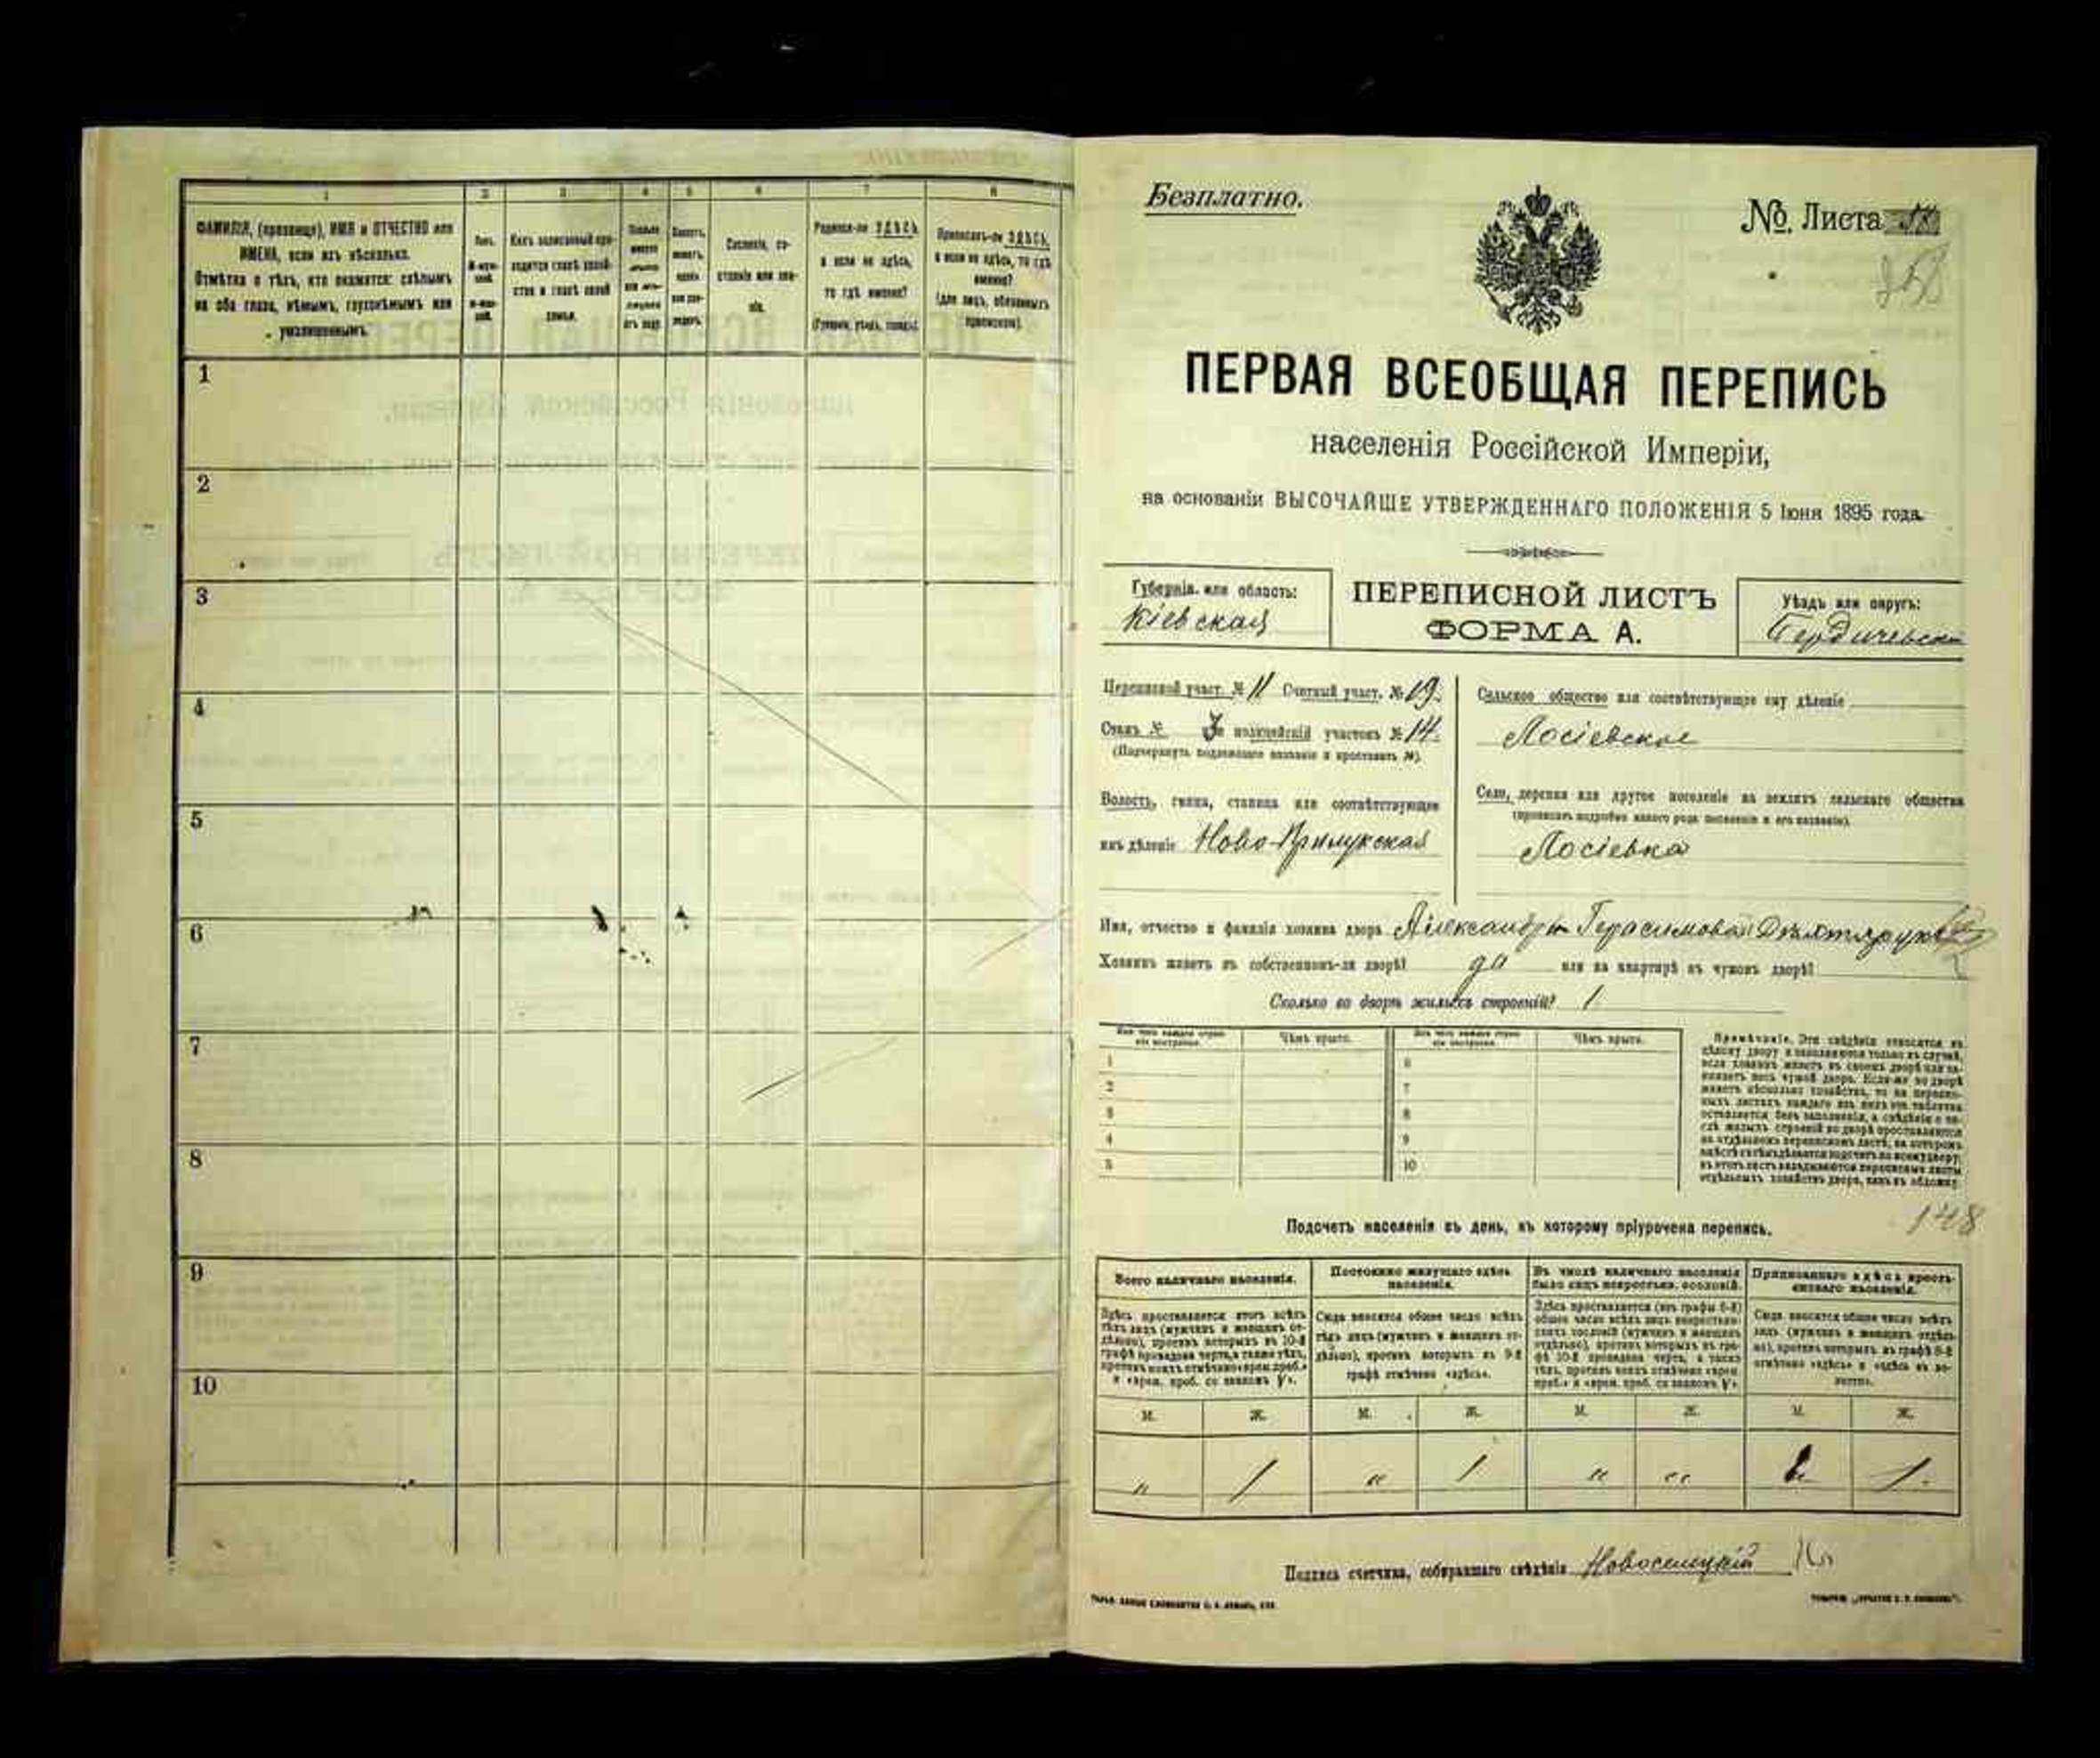 1 2 3 4 5 6 7 8
ФАМИЛІЯ, (прозвище), ИМЯ и ОТЧЕСТВО или
ИМЕНА, если ихъ нѣсколько.
Отмѣтка о тѣхъ, кто окажется: слѣпымъ
на оба глаза, нѣмымъ, глухонѣмымъ или
умалишеннымъ.
Полъ.
Какъ записанный при-
ходится главѣ хозяй-
ства и главѣ своей
семьи.
Сословіе, со-
стояніе или зва-
ніе.
Родился-ли ЗДѢСЬ,
а если не здѣсь,
то гдѣ именно?
(Губернія, уѣздъ, городъ).
Приписанъ-ли ЗДѢСЬ,
а если не здѣсь, то гдѣ
именно?
(для лицъ, обязанныхъ
припискою).
1
2
3
4
5
6
7
8
9
10
Безплатно.
№ Листа
ПЕРВАЯ ВСЕОБЩАЯ ПЕРЕПИСЬ
населенія Россійской Имперіи,
на основаніи ВЫСОЧАЙШЕ УТВЕРЖДЕННАГО ПОЛОЖЕНІЯ 5 Іюня 1895 года.
Губернія или область:
Кіевская
ПЕРЕПИСНОЙ ЛИСТЪ
ФОРМА А.
Уѣздъ или округъ:
Бердичевск
Переписной участ. № 11 Счетный участ. № 19.
Станъ № 3 полицейскій участокъ № 14.
(Подчеркнуть подлежащее названіе и проставить №).
Волость, гмина, станица или соотвѣтствующее
имъ дѣленіе Ново-Прилукская
Сельское общество или соотвѣтствующее ему дѣленіе
Лосіевское
Село, деревня или другое поселеніе на земляхъ сельскаго общества
(прописать подробно какого рода поселеніе и его названіе).
Лосіевка
Имя, отчество и фамилія хозяина двора Александръ Герасимова
Хозяинъ живетъ въ собственномъ-ли дворѣ? да или на квартирѣ въ чужомъ дворѣ?
Сколько во дворѣ жилыхъ строеній? 1.
Изъ чего каждое строе-
ніе построено.
Чѣмъ крыто.
Изъ чего каждое строе-
ніе построено.
Чѣмъ крыто.
1 6
2 7
3 8
4 9
5 10
Примѣчаніе. Эти свѣдѣнія относятся къ
цѣлому двору и заполняются только въ случаѣ,
если хозяинъ живетъ въ своемъ дворѣ или за-
нимаетъ весь чужой дворъ. Если-же во дворѣ
живетъ нѣсколько хозяйствъ, то на перепис-
ныхъ листахъ каждаго изъ нихъ эта табличка
оставляется безъ заполненія, а свѣдѣнія о чи-
слѣ жилыхъ строеній во дворѣ проставляются
на отдѣльномъ переписномъ листѣ, на которомъ
вмѣстѣ съ тѣмъ дѣлается подсчетъ по всему двору;
въ этотъ листъ вкладываются переписные листы
отдѣльныхъ хозяйствъ двора, какъ въ обложку.
Подсчетъ населенія въ день, къ которому пріурочена перепись.
148
Всего наличнаго населенія.
Здѣсь проставляется итогъ всѣхъ
тѣхъ лицъ (мужчинъ и женщинъ от-
дѣльно), противъ которыхъ въ 10-й
графѣ проведена черта, а также тѣхъ,
противъ коихъ отмѣчено «врем. проб.»
и «врем. проб. со знакомъ V».
Постоянно живущаго здѣсь
населенія.
Сюда вносится общее число всѣхъ
тѣхъ лицъ (мужчинъ и женщинъ от-
дѣльно), противъ которыхъ въ 9-й
графѣ отмѣчено «здѣсь».
Въ числѣ наличнаго населенія
было лицъ некрестьян. сословій.
Здѣсь проставляется (изъ графы 6-й)
общее число всѣхъ лицъ некрестьян-
скихъ сословій (мужчинъ и женщинъ
отдѣльно), противъ которыхъ въ гра-
фѣ 10-й проведена черта, а также
тѣхъ, противъ коихъ отмѣчено «врем.
проб.» и «врем. проб. со знакомъ V».
Приписаннаго здѣсь кресть-
янскаго населенія.
Сюда вносится общее число всѣхъ
лицъ (мужчинъ и женщинъ отдѣль-
но), противъ которыхъ въ графѣ 8-й
отмѣчено «здѣсь» и «здѣсь въ во-
лости».
М. Ж. М. Ж. М. Ж. М. Ж.
" 1 " 1 " " 1.
Подпись счетчика, собиравшаго свѣдѣнія Новоселицкій